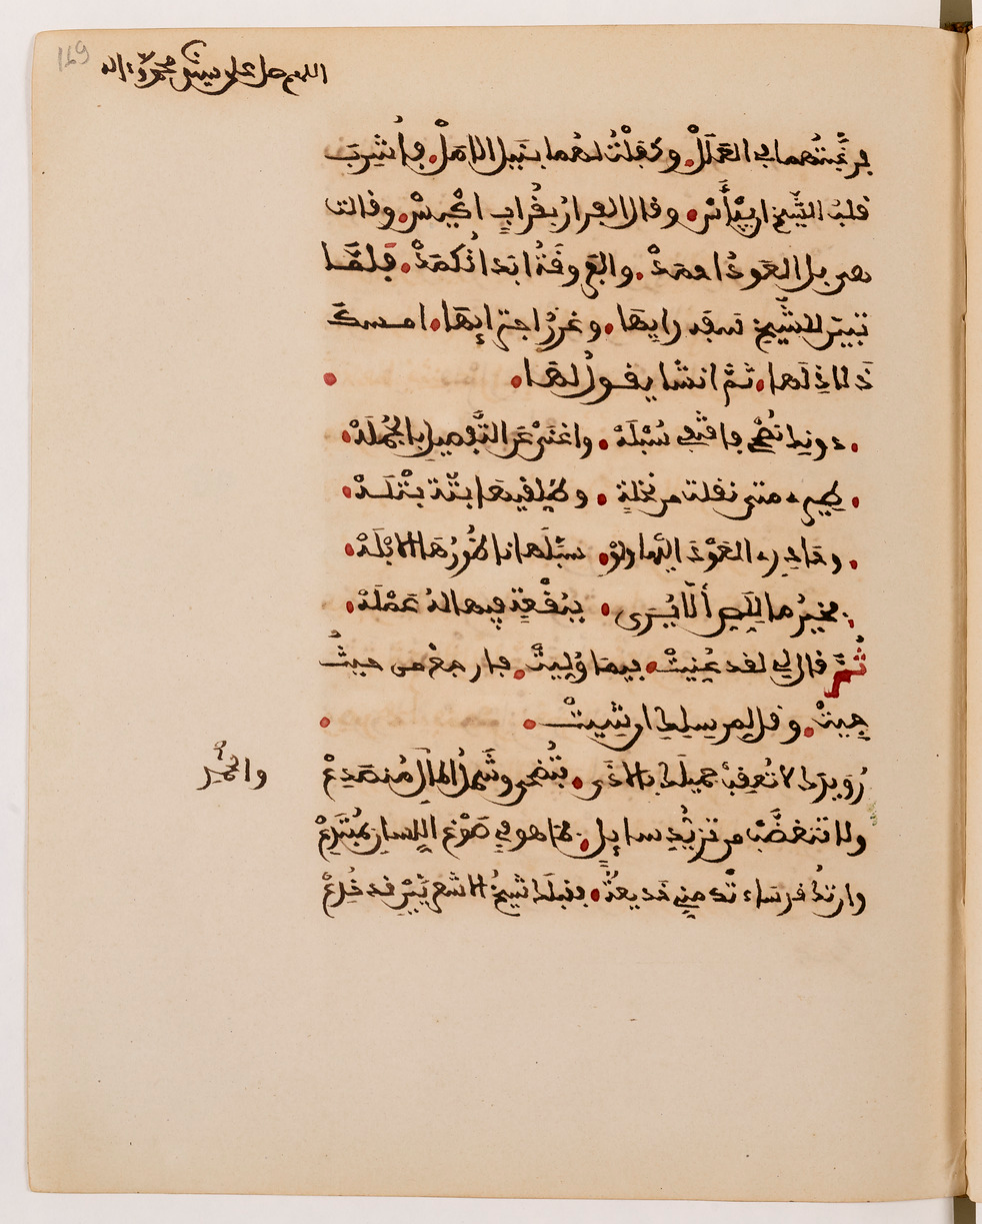 169
اللهم صل على سيدنا محمد وءاله
فرغبتهما في العلل. وكفلت لهما بنيل الامل. فاشرب
قلب الشيخ ان ييأس. وقال الفرار بقراب اكيس. وقالت
هي بل العود احمد. والفروقة ابدا تكمد. فلما
تبين للشيخ سفه رايها. وغرر اجترايها. امسك
ذلاذلها. ثم انشا يقول لها.
دونك نصحي فاقتفي سبله. واغني عن التفصيل بالجمله.
طيري متى نقلت من نخلة. وطلقيها بتة بتله.
وحاذري العود اليها ولو. سبلها ناطورها الابله.
فخير ما للص ألا يرى. ببقعة فيها له عمله.
ثم قال لي لقد عنيت. فيما وليت. فارجع من حيث
جيت. وقل لمرسلك ان شيت.
رويدك لا تعقب جميلك بالاذى. فتضحي وشمل المال منصدع
والحمد
ولا تتغضب من تزيد سايل. فما هو في صوغ اللسان بمبتدع
وان تك قد ساءتك مني خديعة. فقبلك شيخ الاشعريين قد خدع